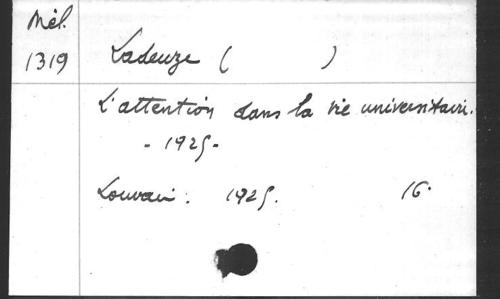 Mél.
1319
Ladeuze ( )
L'attention dans la vie universitaire.
- 1925 -
Louvain. 1925. 16°